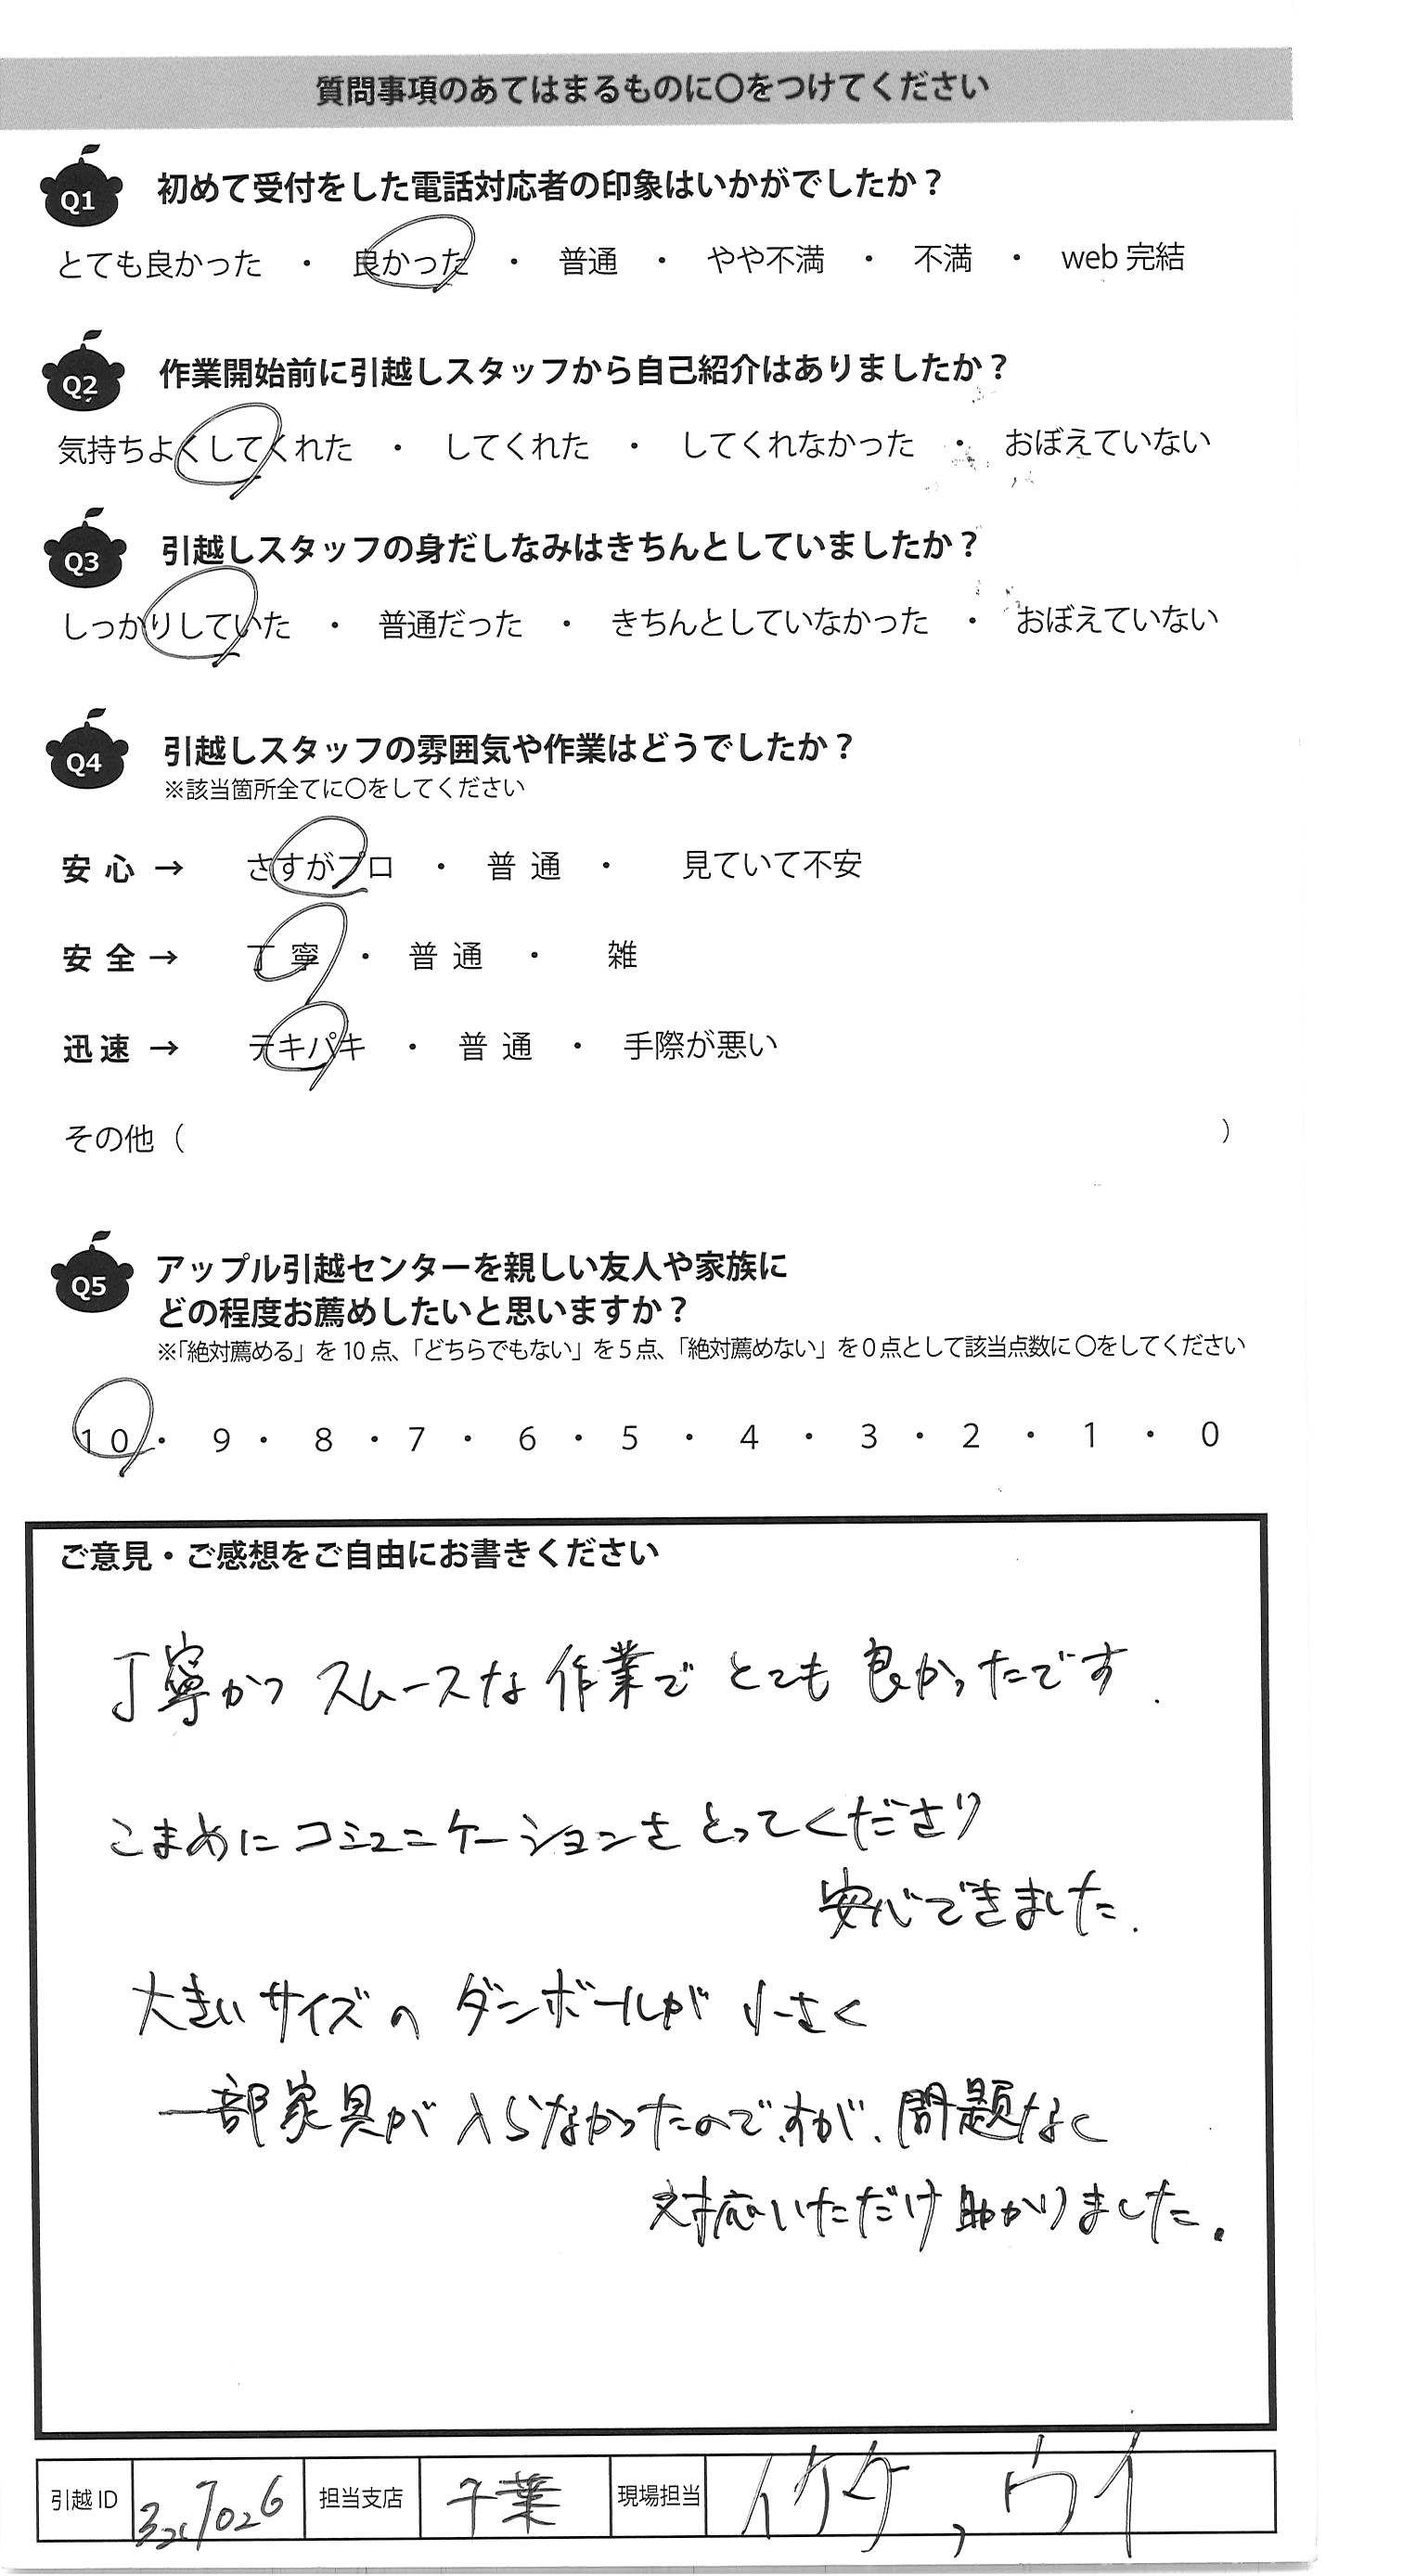 質問事項のあてはまるものに〇をつけてください
Q1 初めて受付をした電話対応者の印象はいかがでしたか？
とても良かった ・ 良かった ・ 普通 ・ やや不満 ・ 不満 ・ web 完結
Q2 作業開始前に引越しスタッフから自己紹介はありましたか？
気持ちよくしてくれた ・ してくれた ・ してくれなかった ・ おぼえていない
Q3 引越しスタッフの身だしなみはきちんとしていましたか？
しっかりしていた ・ 普通だった ・ きちんとしていなかった ・ おぼえていない
Q4 引越しスタッフの雰囲気や作業はどうでしたか？
※該当箇所全てに〇をしてください
安心 → さすがプロ ・ 普通 ・ 見ていて不安
安全 → 丁寧 ・ 普通 ・ 雑
迅速 → テキパキ ・ 普通 ・ 手際が悪い
その他（ ）
Q5 アップル引越センターを親しい友人や家族に
どの程度お薦めしたいと思いますか？
※「絶対薦める」を10点、「どちらでもない」を5点、「絶対薦めない」を0点として該当点数に〇をしてください
10 ・ 9 ・ 8 ・ 7 ・ 6 ・ 5 ・ 4 ・ 3 ・ 2 ・ 1 ・ 0
ご意見・ご感想をご自由にお書きください
丁寧かつスムースな作業でとても良かったです.
こまめにコミュニケーションをとってくださり
安心できました.
大きいサイズのダンボールが小さく
一部家具が入らなかったのですが、問題なく
対応いただけ助かりました。
引越ID 担当支店 千葉 現場担当 ウイ